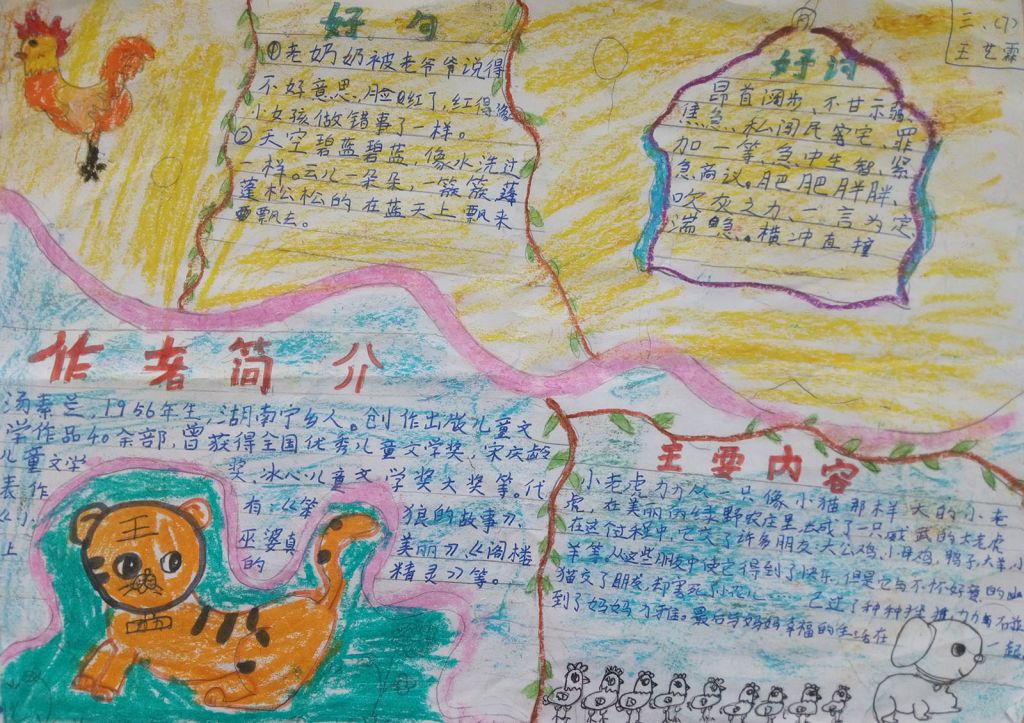 好句
①老奶奶被老爷爷说得
不好意思,脸红了,红得像
小女孩做错事了一样。
②天空碧蓝碧蓝,像水洗过
一样。云儿一朵朵,一簇簇蓬
蓬松松的在蓝天上飘来
飘去。
三.(7)
王艺霖
好词
昂首阔步、不甘示弱、
焦急、私闯民宅、罪
加一等、急中生智、紧
急商议。肥肥胖胖、
吹灰之力、一言为定
横冲直撞
作者简介
汤素兰,1956年生,湖南宁乡人。创作出版儿童文
学作品40余部,曾获得全国优秀儿童文学奖,宋庆龄
儿童文学奖、冰心儿童文学奖大奖等。代
表作有:《笨
《小狼的故事》、
上巫婆真美丽》、《阁楼
的精灵》等。
主要内容
小老虎力力从一只像小猫那样大的小老
虎,在美丽的绿野农庄里长成了一只威武的大老虎
在这个过程中,它交了许多朋友大公鸡,小母鸡,鸭子,大羊,小
羊等,从这些朋友中使它得到了快乐,但是它与不怀好意的山
猫交了朋友,却害死了小花儿……
到了妈妈力雅。最后与妈妈幸福的生活在一起